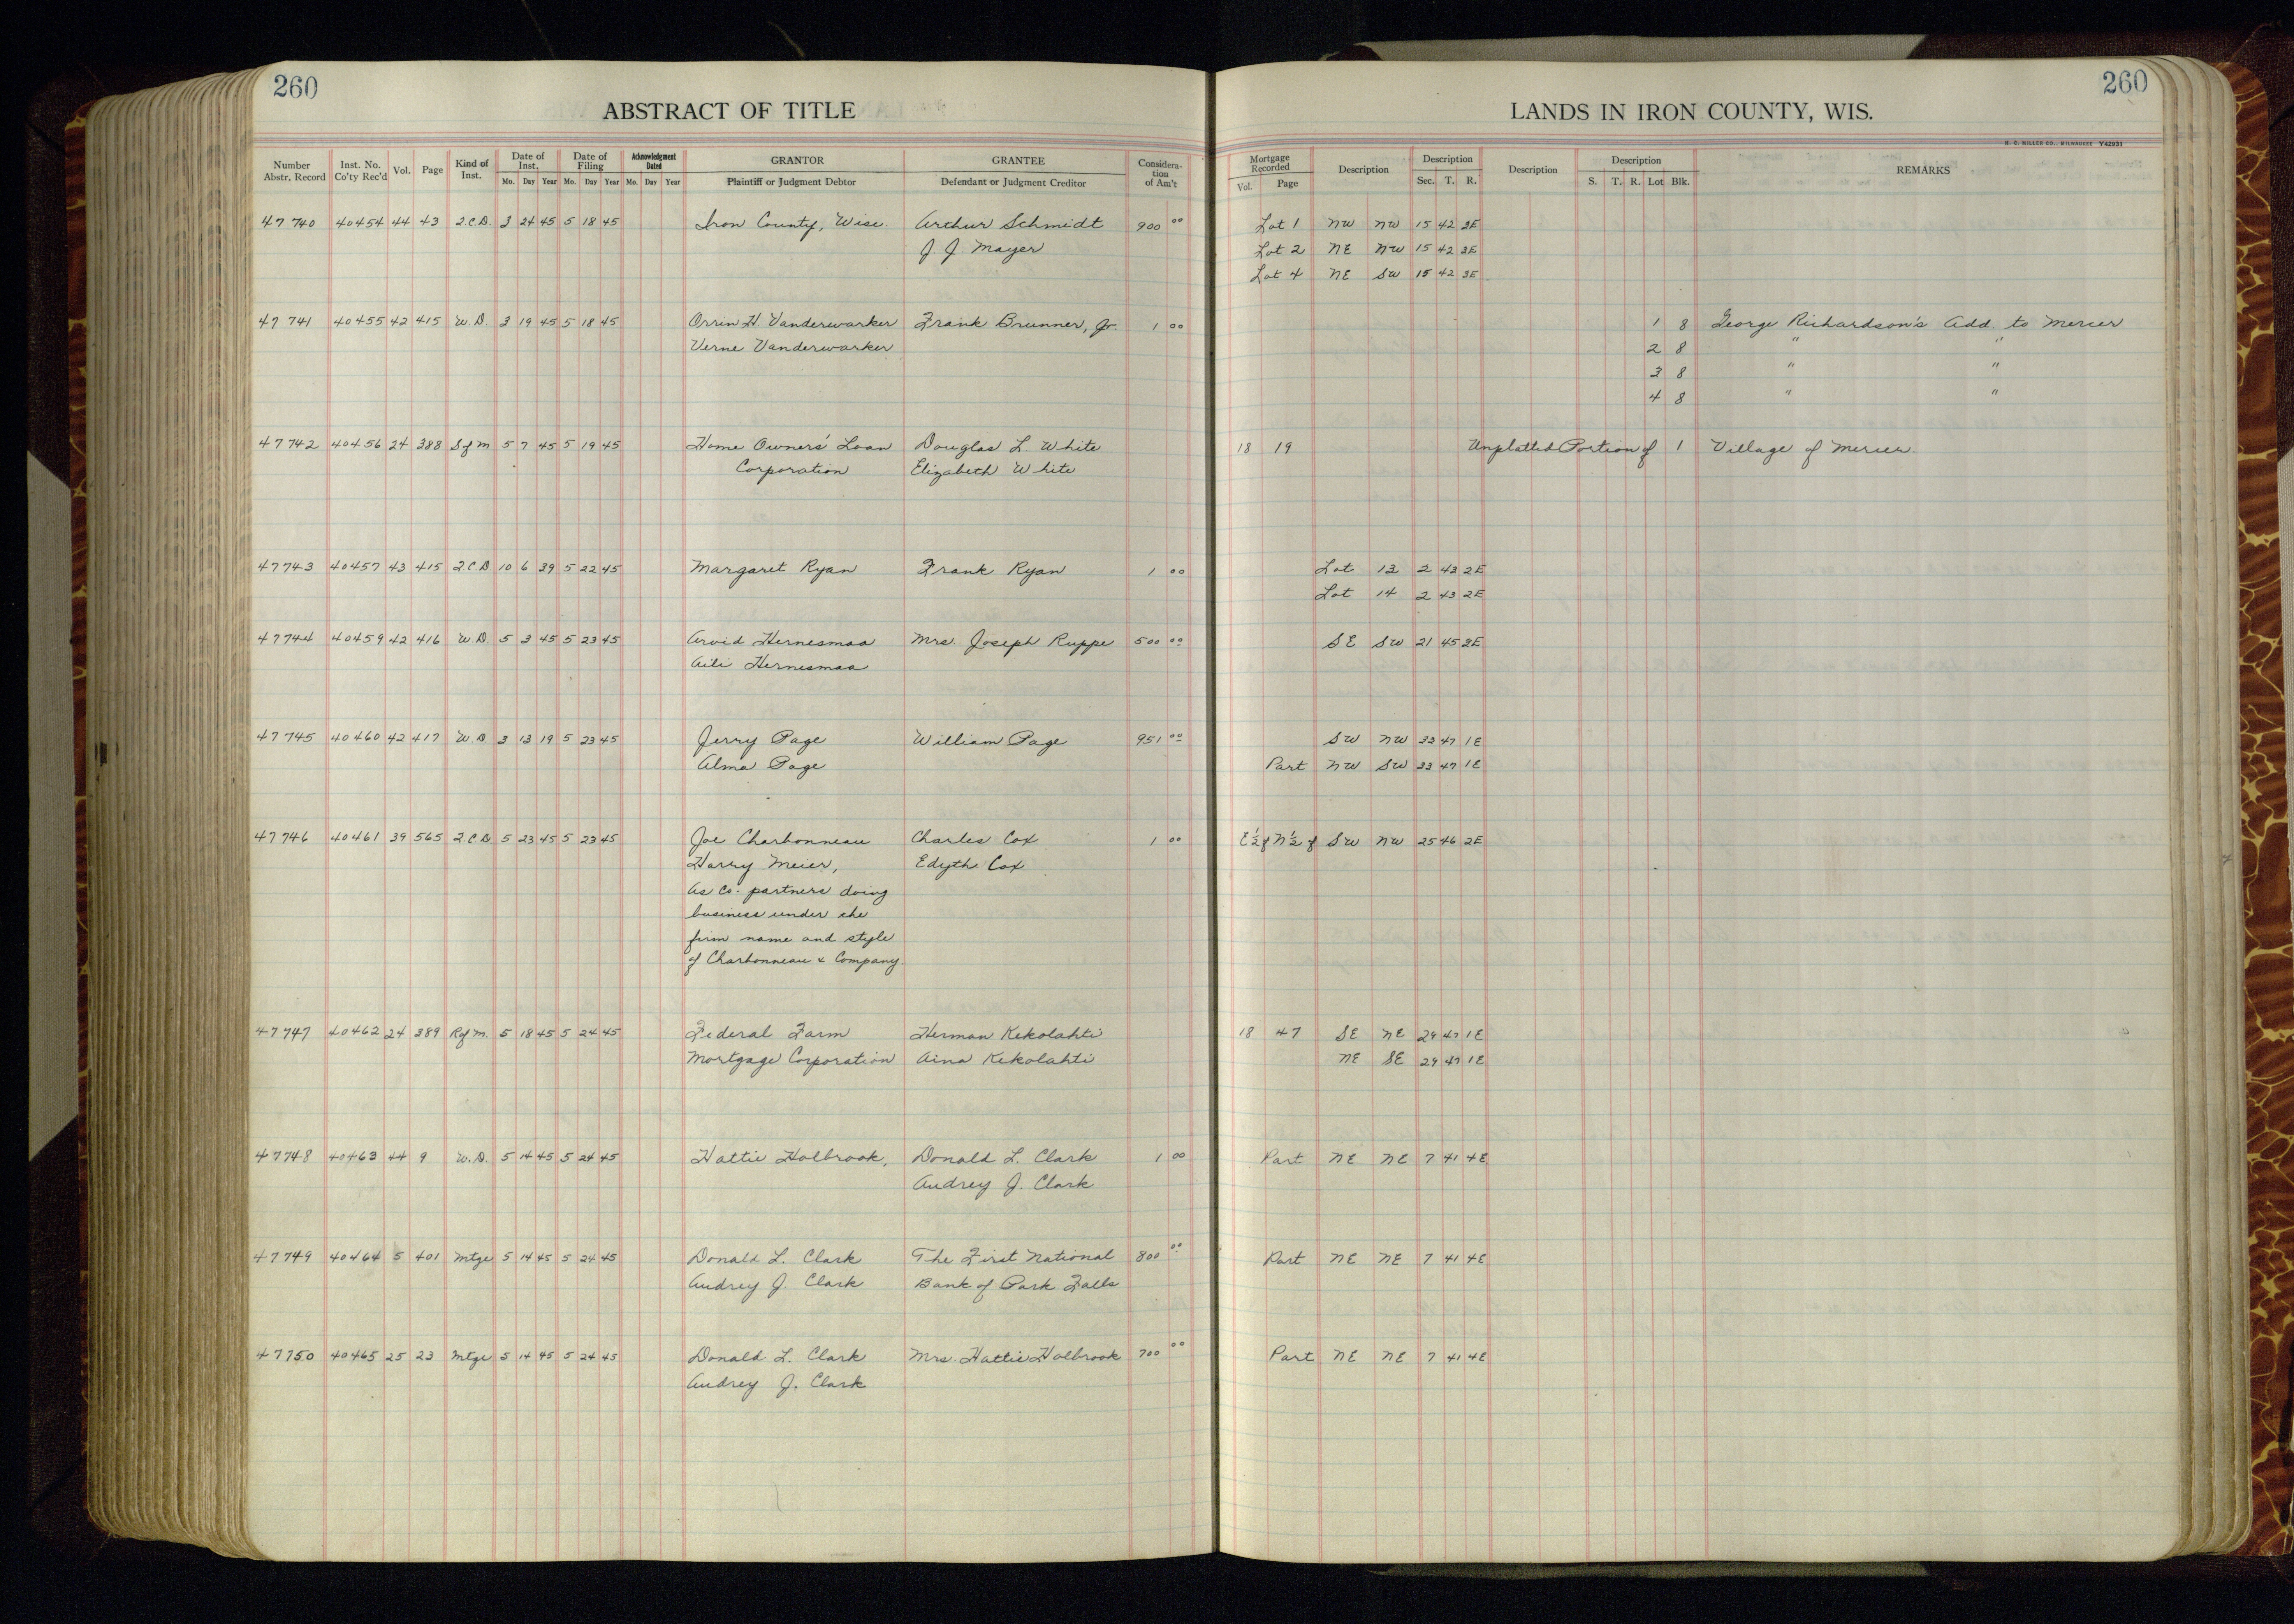 260
ABSTRACT OF TITLE
Number Abstr. Record | Inst. No. Co'ty Rec'd | Vol. | Page | Kind of Inst. | Date of Inst. Mo. Day Year | Date of Filing Mo. Day Year | Acknowledgment Dated Mo. Day Year | GRANTOR Plaintiff or Judgment Debtor | GRANTEE Defendant or Judgment Creditor | Considera-tion of Am't
47740 40454 44 43 Q.C.D. 3 24 45 5 18 45 Iron County, Wisc. Arthur Schmidt 900 00
J. J. Mayer
47741 40455 42 415 W.D. 3 19 45 5 18 45 Orrin H Vanderwarker Frank Brunner, Jr. 1 00
Verne Vanderwarker
47742 40456 24 388 S of M 5 7 45 5 19 45 Home Owners' Loan Douglas L. White
Corporation Elizabeth White
47743 40457 43 415 Q.C.D 10 6 39 5 22 45 Margaret Ryan Frank Ryan 1 00
47744 40459 42 416 W.D. 5 3 45 5 23 45 Arvid Hernesmaa Mrs. Joseph Ruppe 500 00
Aili Hernesmaa
47745 40460 42 417 W.D. 3 13 19 5 23 45 Jerry Page William Page 951 00
Alma Page
47746 40461 39 565 Q.C.D 5 23 45 5 23 45 Joe Charbonneau Charles Cox 1 00
Harry Meier, Edyth Cox
As Co-partners doing
business under the
firm name and style
of Charbonneau & Company.
47747 40462 24 389 R of M. 5 18 45 5 24 45 Federal Farm Herman Kekolahti
Mortgage Corporation Aina Kekolahti
47748 40463 44 9 W.D. 5 14 45 5 24 45 Hattie Holbrook, Donald L. Clark 1 00
Audrey J. Clark
47749 40464 5 401 Mtge 5 14 45 5 24 45 Donald L. Clark The First National 800 00
Audrey J. Clark Bank of Park Falls
47750 40465 25 23 Mtge 5 14 45 5 24 45 Donald L. Clark Mrs. Hattie Holbrook 700 00
Audrey J. Clark
260
LANDS IN IRON COUNTY, WIS.
H. C. MILLER CO., MILWAUKEE Y42931
Mortgage Recorded Vol. Page | Description | Description Sec. T. R. | Description | Description S. T. R. Lot Blk. | REMARKS
Lot 1 NW NW 15 42 3E
Lot 2 NE NW 15 42 3E
Lot 4 NE SW 15 42 3E
1 8 George Richardson's Add. to Mercer
2 8 " "
3 8 " "
4 8 " "
18 19 Unplatted Portion of 1 Village of Mercer.
Lot 13 2 43 2E
Lot 14 2 43 2E
SE SW 21 45 3E
SW NW 33 47 1E
Part NW SW 33 47 1E
E½ of N½ of SW NW 25 46 2E
18 47 SE NE 29 47 1E
NE SE 29 47 1E
Part NE NE 7 41 4E
Part NE NE 7 41 4E
Part NE NE 7 41 4E